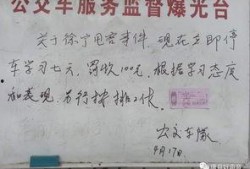 公交车服务监督爆光台
关于徐广电客事件，现在立即停
车学习七天，罚款100元，根据学习态度
和表现，另行安排工作
公交车队
9月17日